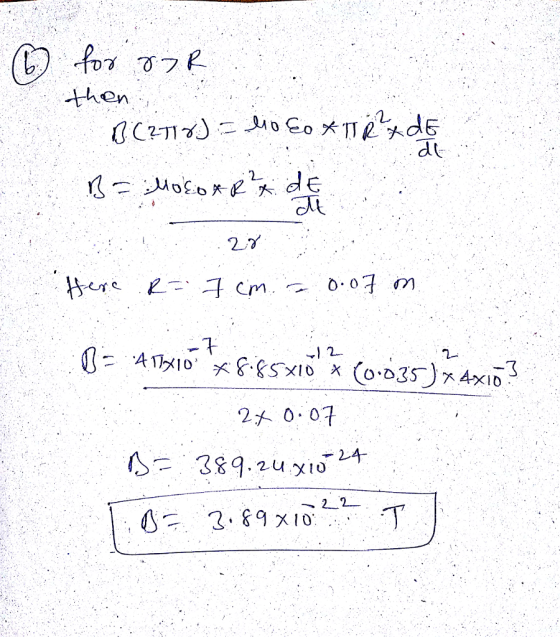 (b) for r > R
then
B(2πr) = μ0 ε0 * πR² * dE/dt
B = μ0 ε0 * R² * dE/dt
2r
Here R = 7 cm = 0.07 m
B = 4π×10⁻⁷ × 8.85×10⁻¹² × (0.035)² × 4×10⁻³
2 × 0.07
B = 389.24 × 10⁻²⁴
B = 3.89 × 10⁻²² T